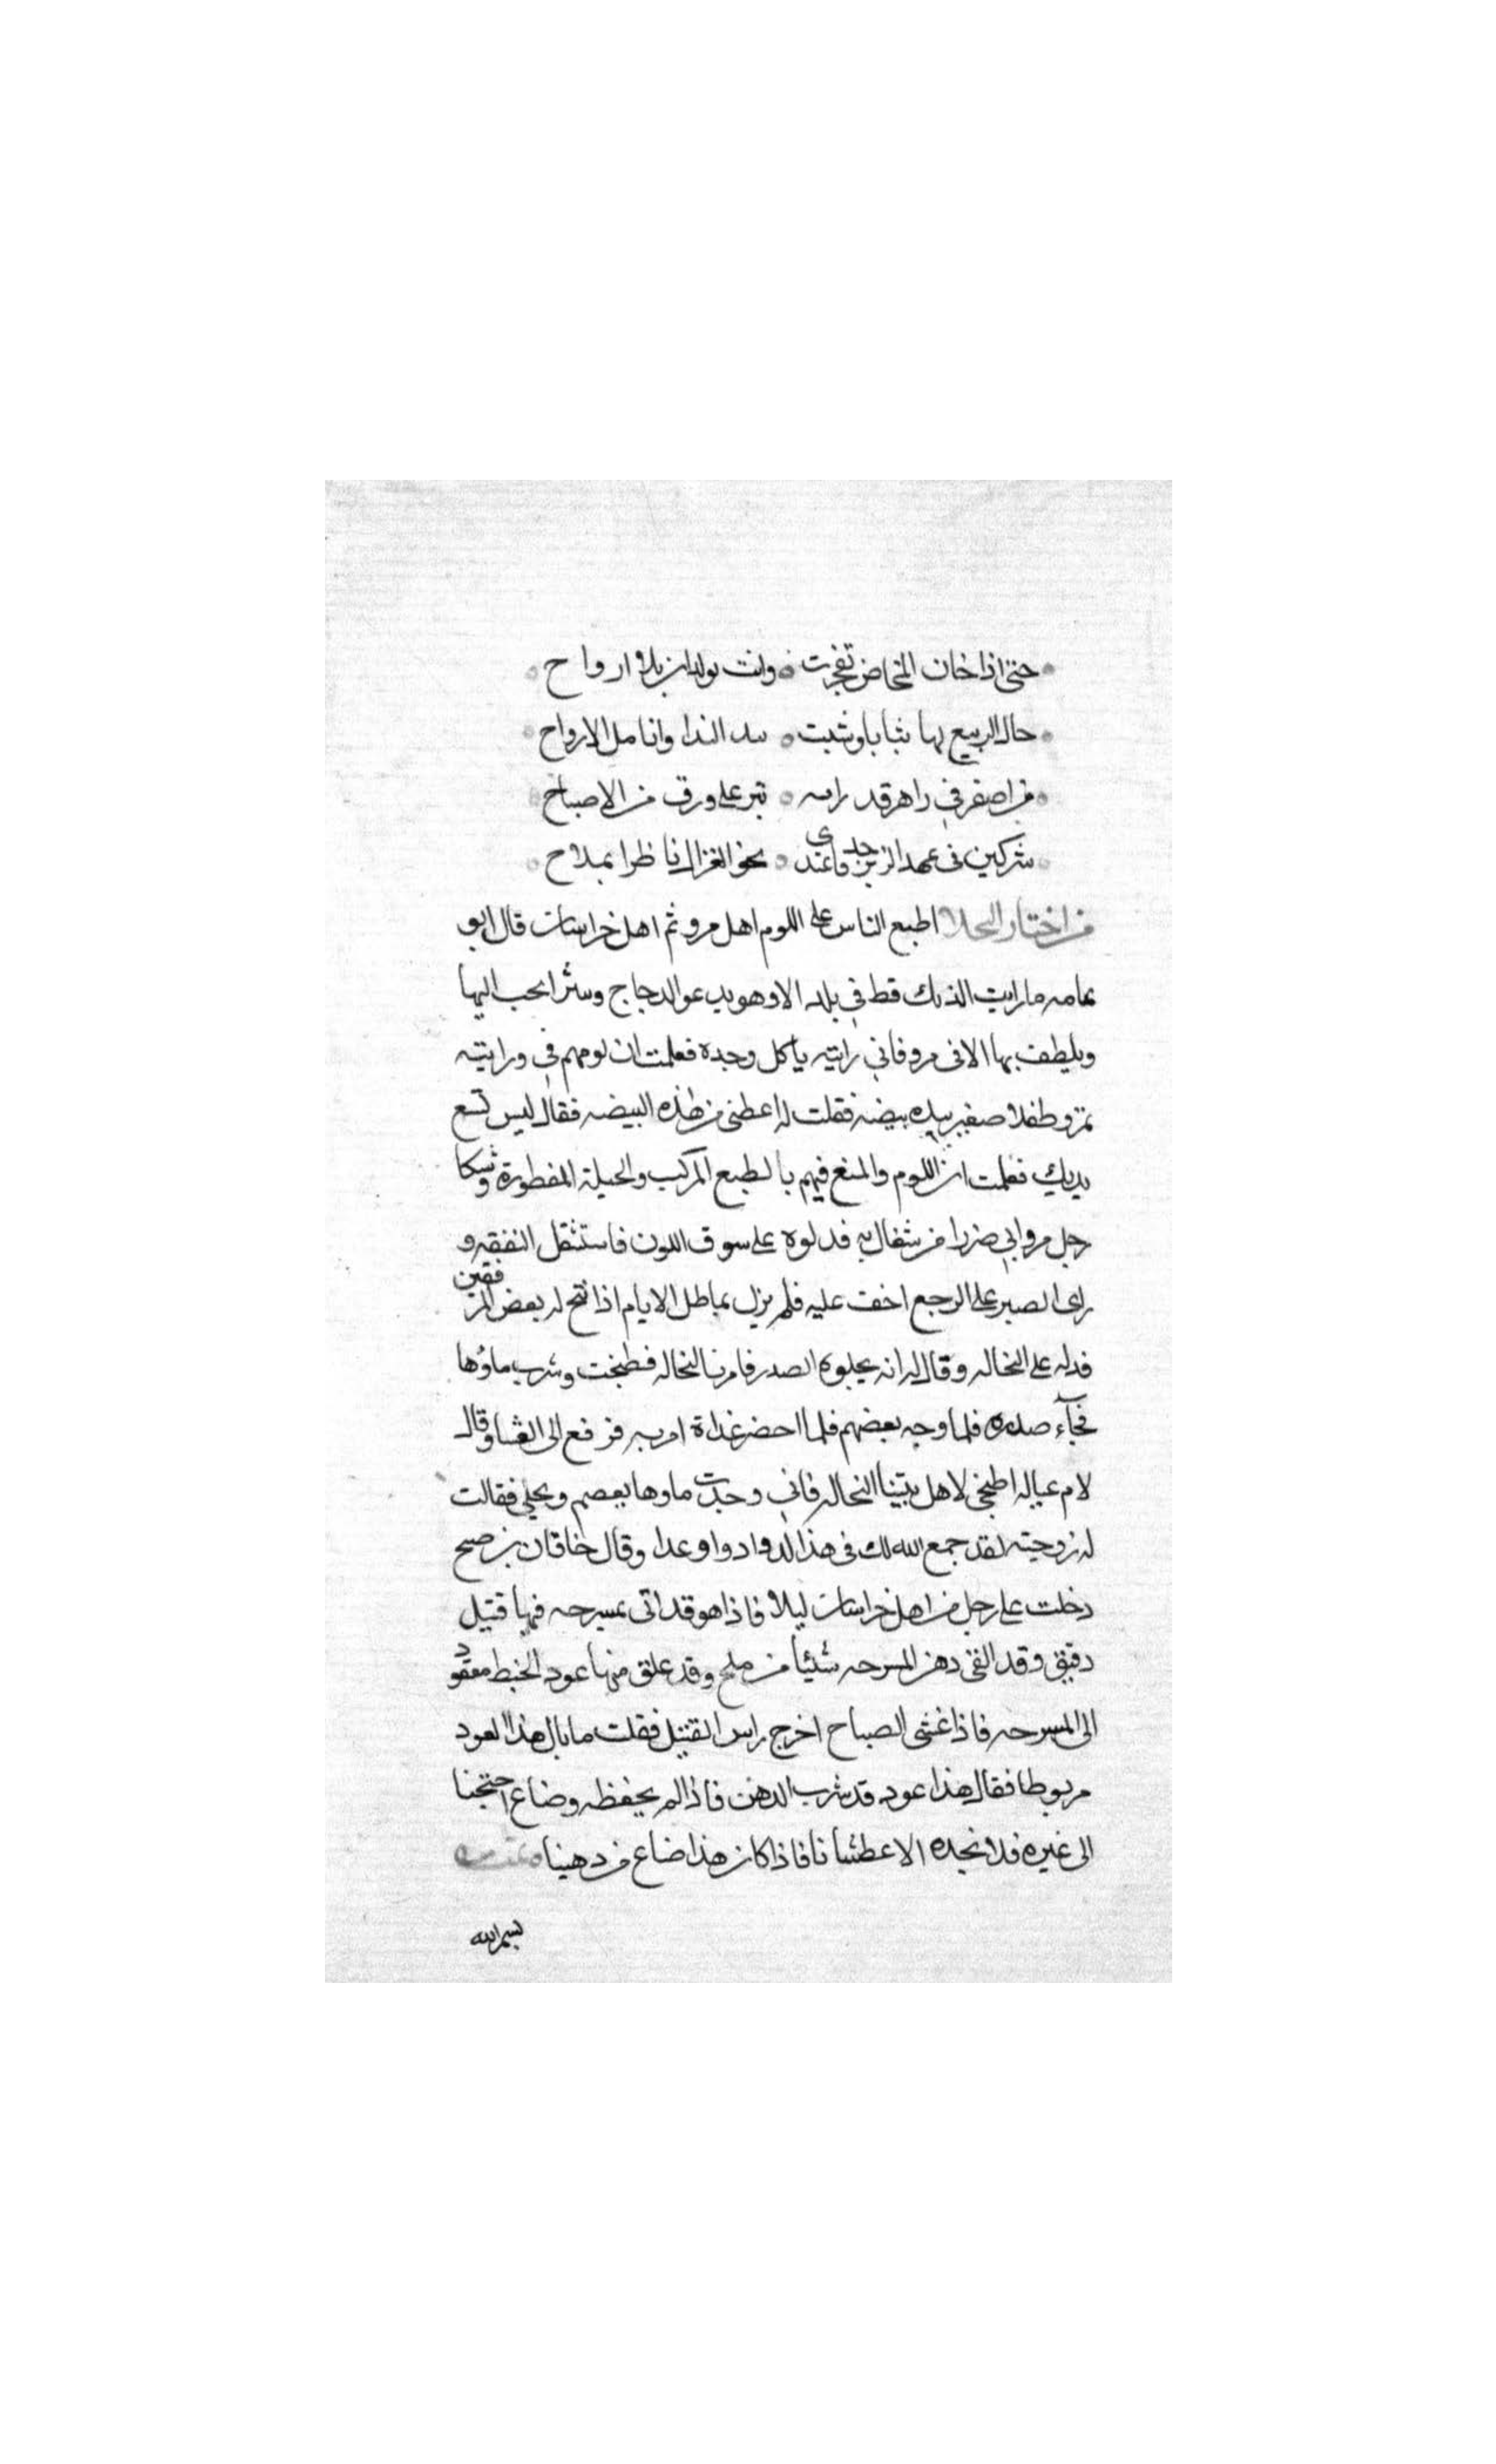 حتى اذا خان المخاض تفجرت ۰ واتت بولدان بلا ارواح
حاك الربيع بها ثيابا وشيت ۰ بيد الندا وانامل الارواح
من اصفر في زاهر قد رامه ۰ تبر على ورق من الاصباح
شركين في عهد الزبرجد فاغتدى ۰ نحو الغزال ناظرا بملاح
من اخبار البخلا اطبع الناس على اللوم اهل مرو ثم اهل خراسان قال ابو
عامه ما رايت الديك قط في بلده الا وهو يدعو الدجاج وينثر الحب اليها
ويلطف بها الا في مرو فاني رايته ياكل وحده فعلمت ان لومهم في ورايته
بمرو طفلا صغير بيده بيضه فقلت له اعطني من هذه البيضه فقال ليس تسع
يديك فعلمت ان اللوم والمنع فيهم بالطبع المركب والحيلة المفطورة وشكا
رجل مروابي ضررا من شغال به فدلوه على سوق اللون فاستثقل النفقه و
راى الصبر على الوجع اخف عليه فلم يزل يماطل الايام اذا فتح له بعض المرفقين
فدله على النخاله وقال له انه يجلوه الصدر فامر بالنخاله فطبخت وشرب ماؤها
فجآء صدره فلما وجه بعضهم فلما احضر غداة امر به فرفع الى العشا وقال
لام عياله اطبخي لاهل بيتنا النخاله فاني وجدت ماوها يعصم ويجلي فقالت
له زوجته لقد جمع الله لك في هذا الدوا دوا وغدا وقال خاقان بن صبح
دخلت على رجل من اهل خراسان ليلا فاذا هو قد اتى بمسرجه فيها فتيل
دقيق وقد القى دهن المسرجه شئيا من ملح وقد علق منها عود الخيط معقود
الى المسرجه فاذا غشى الصباح اخرج راس الفتيل فقلت ما بال هذا العود
مربوطا فقال هذا عود قد شرب الدهن فاذا لم يحفظه وضاع احتجنا
الى غيره فلا نجده الا عطشانا فاذا كان هذا ضاع من دهينا
بسم الله